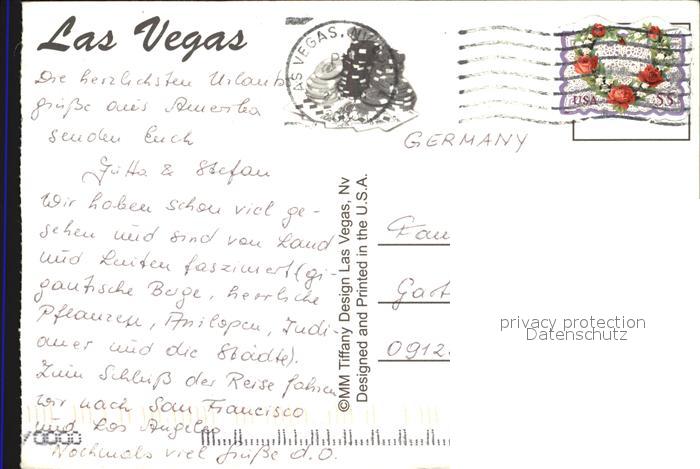 Las Vegas
LAS VEGAS, NV
USA 55
GERMANY
Die herzlichsten Urlaubs
grüße aus Amerika
senden Euch
Jutta & Stefan
Wir haben schon viel ge-
sehen und sind von Land
und Leuten fasziniert (gi-
gantische Berge, herrliche
Pflanzen, Antilopen, Indi-
aner und die Städte).
Zum Schluß der Reise fahren
wir nach San Francisco
und Los Angeles
Nochmals viel Grüße d. O.
©MM Tiffany Design Las Vegas, Nv
Designed and Printed in the U.S.A.
Fam
Gart
0912.
privacy protection
Datenschutz